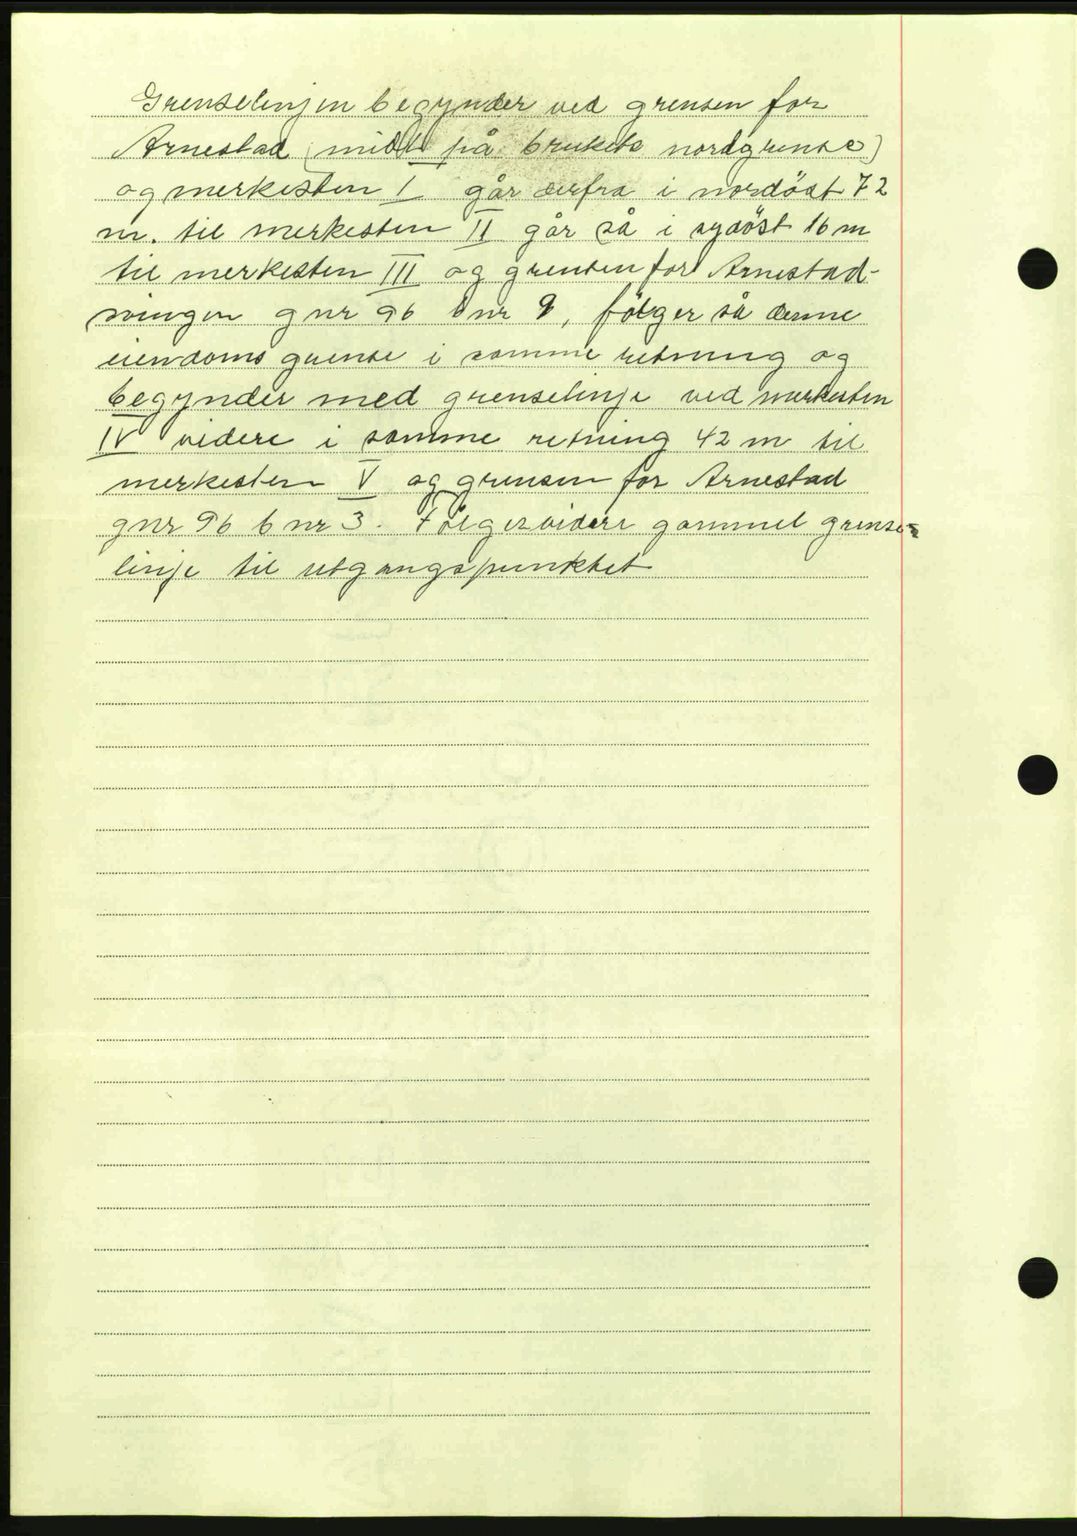 Grenselinjen begynder ved grensen for
Arnestad (midt på brukets nordgrense)
og merkesten I går derfra i nordöst 72
m. til merkesten II går så i sydöst 16 m
til merkesten III og grensen for Arnestad-
svingen gnr 96 bnr 9, fölger så denne
eiendoms grense i samme retning og
begynder med grenselinje ved merkesten
IV videre i samme retning 42 m til
merkesten V og grensen for Arnestad
gnr 96 bnr 3. Fölger videre gammel grense-
linje til utgangspunktet